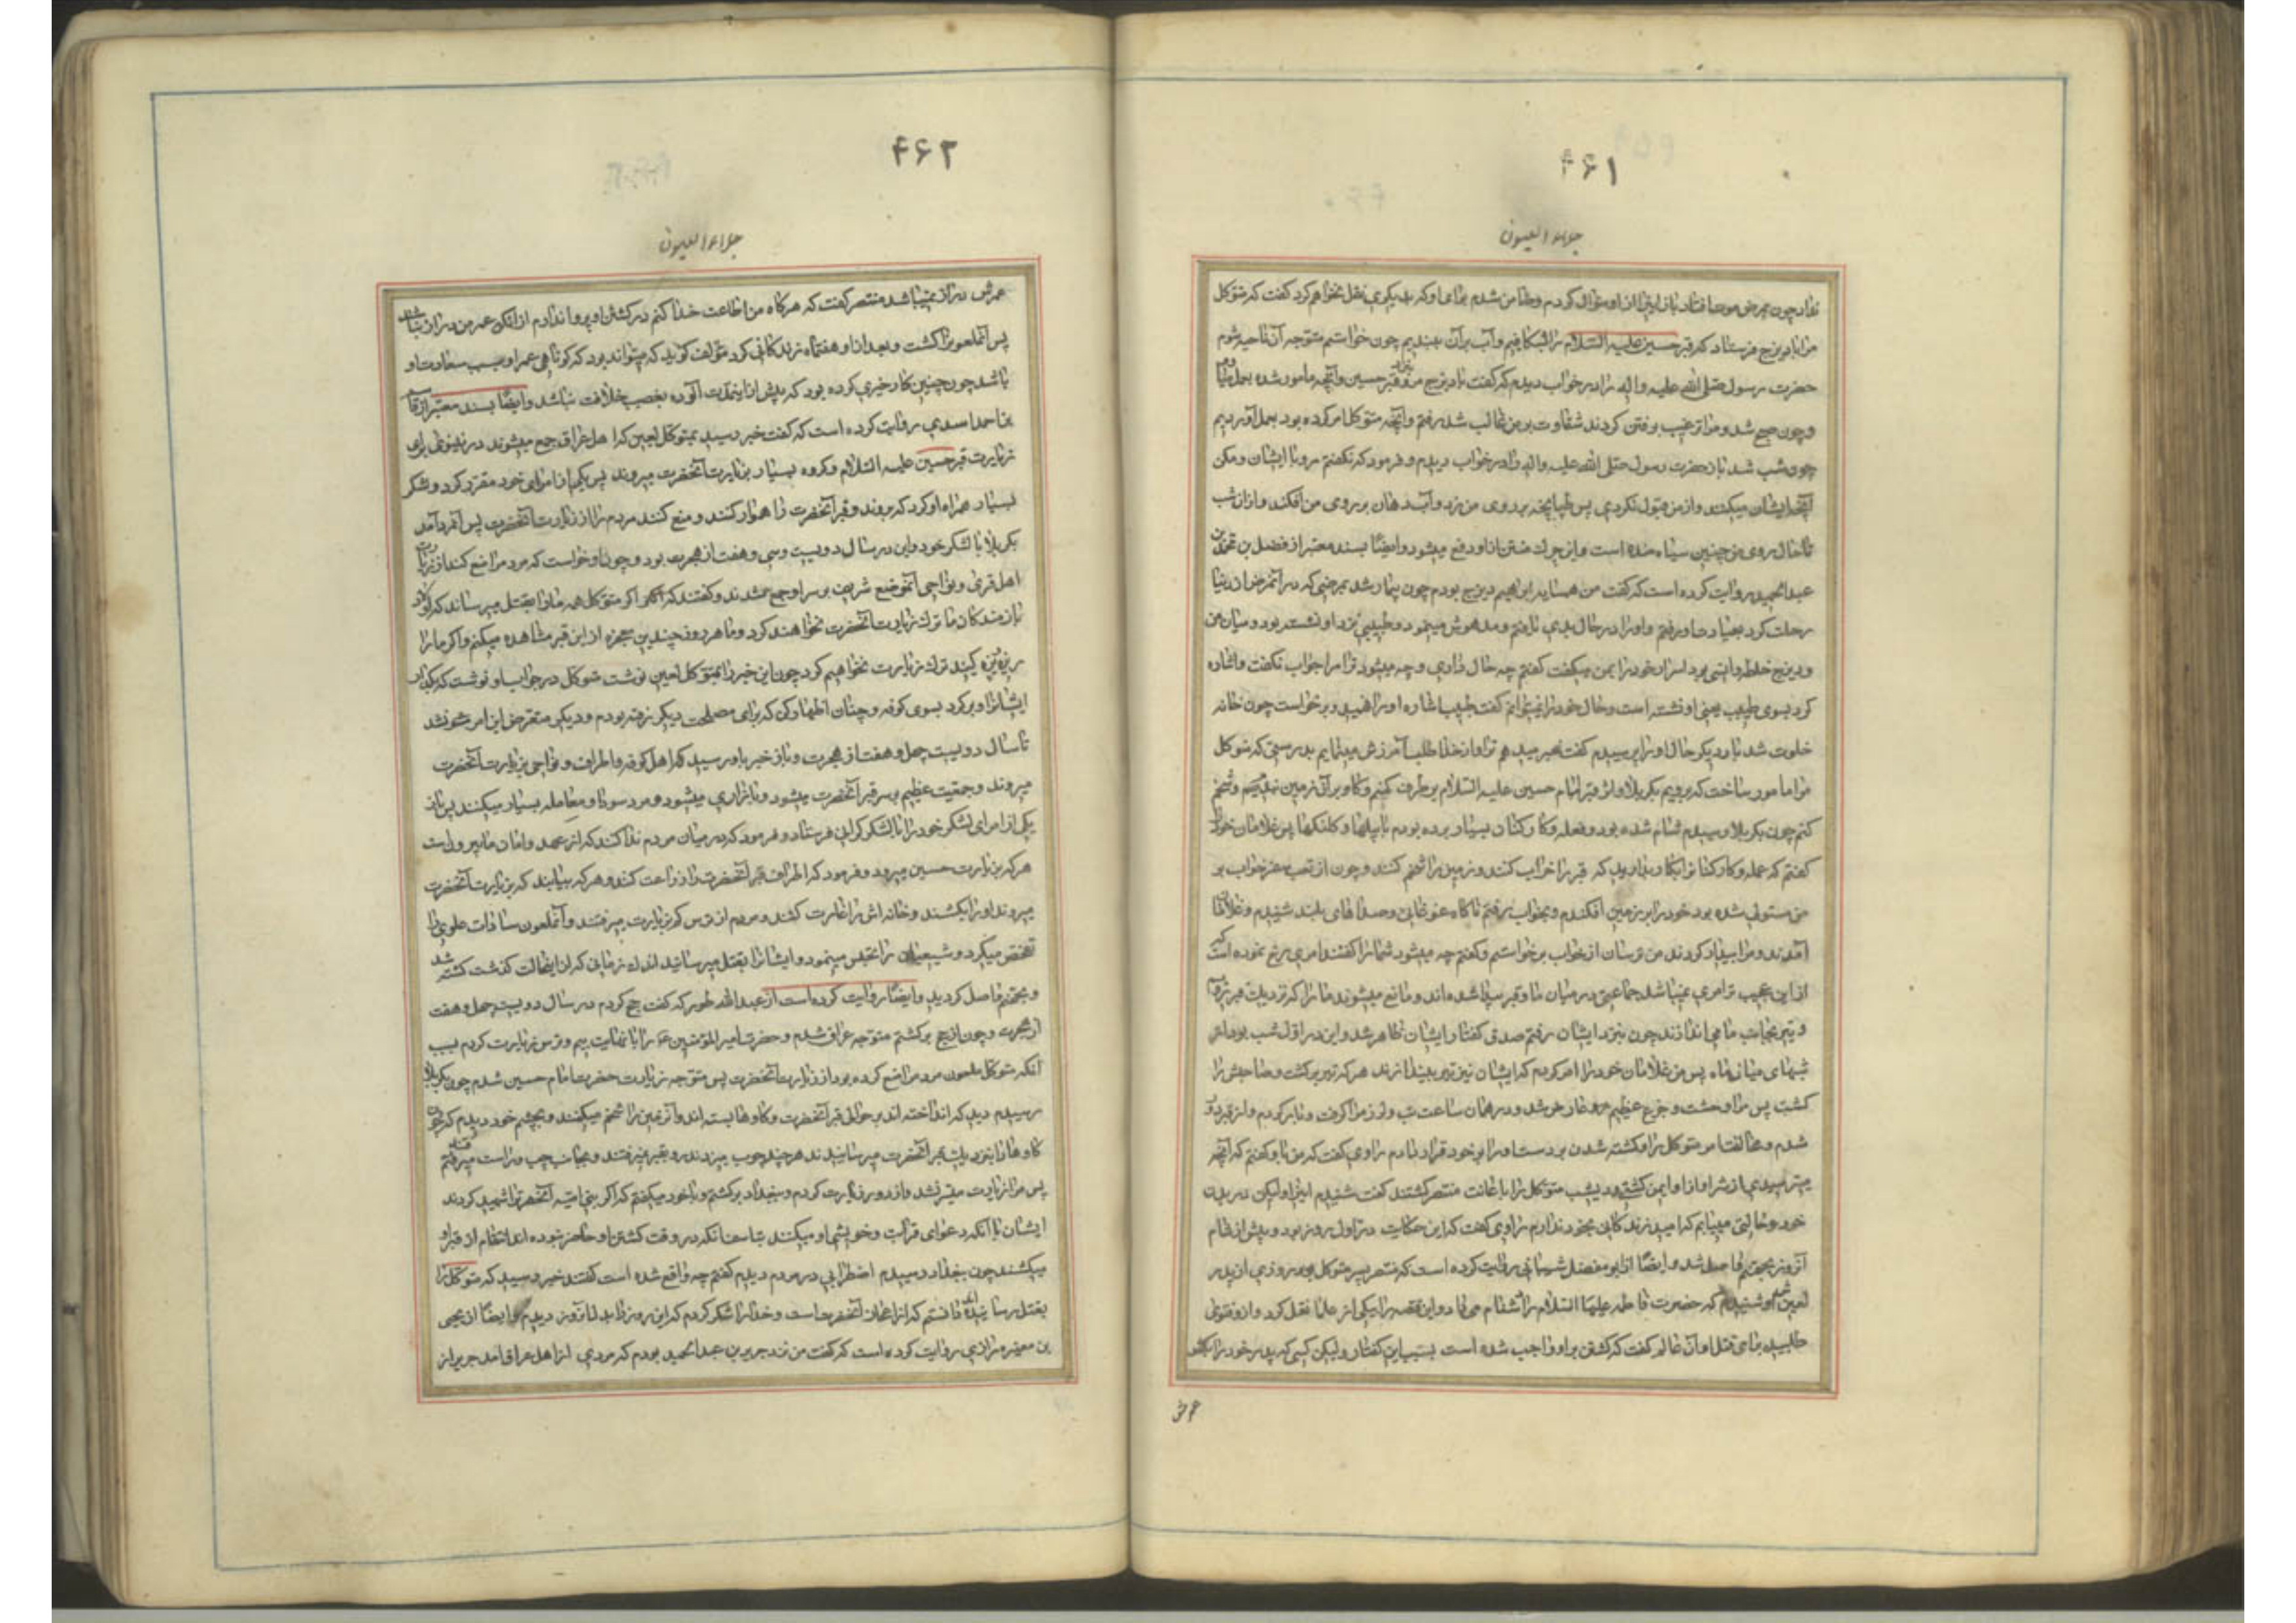 ۴۶۱
جلاء العیون
نداد چون بمرض موت افتاد باز اینرا از او سؤال کردم و ضامن شدم برای او که بدیگری نقل نخواهم کرد گفت که متوکل
مرا با دیزج فرستاد که قبر حسین علیه السلام را بشکافیم و آب بر آن ببندیم چون خواستم متوجه آن ناحیه شوم
حضرت رسول صلی الله علیه و اله را در خواب دیدم که گفت با دیزج مرو بنزد قبر حسین و آنچه مامور شده بعمل میا
و چون صبح شد و مرا ترغیب برفتن کردند شقاوت بر من غالب شد رفتم و آنچه متوکل امر کرده بود بعمل آوردیم
چون شب شد باز حضرت رسول صلی الله علیه و اله را در خواب دیدم و فرمود که نگفتم مرو با ایشان و مکن
آنچه ایشان میکنند و از من قبول نکردی پس طپانچه بر روی من زد و آب دهان بر روی من افکند و از ان شب
تا حال روی من چنین سیاه شده است و این چرک متن از او دفع میشود و ایضا بسند معتبر از فضل بن محمد بن
عبد الحمید روایت کرده است که گفت من همسایه ابراهیم دیزج بودم چون بیمار شد بمرضی که در آنمرض از دنیا
رحلت کرد بعیادت او رفتم و او را در حال بدی یافتم و مدهوش مینمود و طبیبی نزد او نشسته بود و میان من
و دیزج خلطه و انسی بود اسرار خود را بمن میگفت گفتم چه حال داری و چه میشود ترا مرا جواب نگفت و اشاره
کرد بسوی طبیب یعنی او نشسته است و حال خود را نمیتوانم گفت طبیب اشاره او را فهمید و برخواست چون خانه
خلوت شد بار دیگر حال او را پرسیدم گفت خبر میدهم ترا و از خدا طلب آمرزش مینمایم بدرستی که متوکل
مرا مامور ساخت که برویم بکربلا و اثر قبر امام حسین علیه السلام بر طرف کنیم و گاو بر آن زمین ببندیم و شخم
کنم چون بکربلا رسیدم شام شده بود و فعله و کارکنان بسیار برده بودم با بیلها و کلنگها پس غلامان خود را
گفتم که عمله و کارکنانرا بکار بدارید که قبر را خراب کنند و زمین را شخم کنند و چون از تعب سفر خواب بر
من مستولی شده بود خود را بر زمین افکندم و بخواب رفتم ناگاه غوغائی و صداهای بلند شنیدم و غلامان
آمدند و مرا بیدار کردند من ترسان از خواب برخواستم و گفتم چه میشود شما را گفتند امری رخ نموده است که
از این عجیب تر امری نمیباشد جماعتی در میان ما و قبر پیدا شده اند و مانع میشوند ما را که نزدیک قبر رویم
و تیر بجانب ما می اندازند چون بنزد ایشان رفتم صدق گفتار ایشان ظاهر شد و این در اول شب بود از
شبهای میان ماه پس من غلامان خود را امر کردم که ایشان نیز تیر بیندازند هر که تیر بر گشت و صاحبش را
کشت پس مرا وحشت و جزع عظیم عارض شد و در همان ساعت تب و لرز مرا گرفت و بار کردم و از قبر دور
شدم و مخالفت امر متوکل را و کشته شدن بر دست او را بر خود قرار دادم راوی گفت که من باو گفتم که آنچه
میترسیدی از شر او از او ایمن گشتی دیشب متوکل را با عانت منتصر کشتند گفت شنیدم اینرا و لیکن در بدن
خود حالتی مییابم که امید زندگانی بخود ندارم راوی گفت که این حکایت در اول روز بود و پیش از شام
آنروز بجهنم واصل شد و ایضا از ابو مفضل شیبانی روایت کرده است که منتصر پسر متوکل بود روزی از پدر
لعین خود شنید که حضرت فاطمه علیها السلام را دشنام می داد و این قصه را بیکی از علما نقل کرد و از او فتوی
طلبید برای قتل او آن عالم گفت که کشتن بر او واجب شده است بسبب این گفتار و لیکن کسی که پدر خود را بکشد
عمرش
۴۶۲
جلاء العیون
عمرش دراز نمیباشد منتصر گفت که هرگاه من اطاعت خدا کنم در کشتن او پروا ندارم از انکه عمر من دراز نباشد
پس آنملعونرا کشت و بعد از او هفتماه زندگانی کرد مؤلف گوید که میتواند بود که کوتاهی عمر او بسبب سعادت او
باشد چون چنین کار خیری کرده بود که پیش از اینمدت آلوده بغصب خلافت نباشد و ایضا بسند معتبر از قاسم
بن احمد اسدی روایت کرده است که گفت خبر رسید بمتوکل لعین که اهل عراق جمع میشوند در نینوی برای
زیارت قبر حسین علیه السلام و گروه بسیار بزیارت آنحضرت میروند پس یکی از امرای خود مقرر کرد و لشکر
بسیار همراه او کرد که بروند و قبر آنحضرت را هموار کنند و منع کنند مردم را از زیارت آنحضرت پس آنمرد آمد
بکربلا با لشکر خود و این در سال دویست و سی و هفت از هجرت بود و چون او خواست که مردم را منع کند از زیارت
اهل قری و نواحی آنموضع شریف بر سر او جمع شدند و گفتند که اگر متوکل همه ما را بقتل میرساند که اولاد
بازماندگان ما ترک زیارت آنحضرت نخواهند کرد و ما هر روز چندین معجزه از این قبر مشاهده میکنیم و اگر ما را
ریزه ریزه کنید ترک زیارت نخواهیم کرد چون این خبر را بمتوکل لعین نوشت متوکل در جواب او نوشت که بگذار
ایشانرا و برگرد بسوی کوفه و چنان اظهار کن که برای مصلحت دیگر رفته بودم و دیگر متعرض این امر نشوند
تا سال دویست چهل و هفت از هجرت و باز خبر باو رسید که اهل کوفه و اطراف و نواحی بزیارت آنحضرت
میروند و جمعیت عظیم بر سر قبر آنحضرت میشود و بازاری میشود و مردم سودا و معامله بسیار میکنند پس باز
یکی از امرای لشکر خود را با لشکر گرانی فرستاد و فرمود که در میان مردم ندا کنند که از عهد و امان ما بیرونست
هر که بزیارت حسین میرود و فرمود که اطراف قبر آنحضرت را زراعت کنند و هر که بیابند که بزیارت آنحضرت
میروند او را بکشند و خانه اش را غارت کنند و مردم از ترس کم بزیارت میرفتند و آنملعون سادات علوی را
تفحص میکرد و شیعیان را تجسس مینمود و ایشانرا بقتل میرسانید اندک زمانی که از اینحالت گذشت کشته شد
و بجهنم واصل گردید و ایضا روایت کرده است از عبد الله طهور که گفت حج کردم در سال دویست چهل و هفت
از هجرت و چون از حج برگشتم متوجه عراق شدم و حضرت امیر المؤمنین ع را با نهایت بیم و ترس زیارت کردم بسبب
آنکه متوکل ملعون مردم را منع کرده بود از زیارت آنحضرت پس متوجه زیارت حضرت امام حسین شدم چون بکربلا
رسیدم دیدم که آب انداخته اند بر حوالی قبر آنحضرت و گاوها بسته اند و آنزمین را شخم میکنند و بچشم خود دیدم که چون
گاوها را بنزدیک قبر آنحضرت میرسانیدند هر چند چوب میزدند رو بقبر نمیرفتند و بجانب چپ و راست میرفتند
پس مرا زیارت میسر نشد و از دور زیارت کردم و ببغداد برگشتم و با خود میگفتم که اگر بنی امیه آنحضرترا شهید کردند
ایشان با آنکه دعوای قرابت و خویشی او میکنند تاسف آنکه در وقت کشتن او حاضر نبوده اند انتقام از قبر او
میکشند چون ببغداد رسیدم اضطرابی در مردم دیدم گفتم چه واقع شده است گفتند خبر رسید که متوکل را
بقتل رسانیده اند دانستم که از اعجاز آنحضرت است و خدا را شکر کردم که این روز را بد آنروز دیدم و ایضا از یحیی
بن مغیره رازی روایت کرده است که گفت من نزد جریر بن عبد الحمید بودم که مردی از اهل عراق آمد جریر از